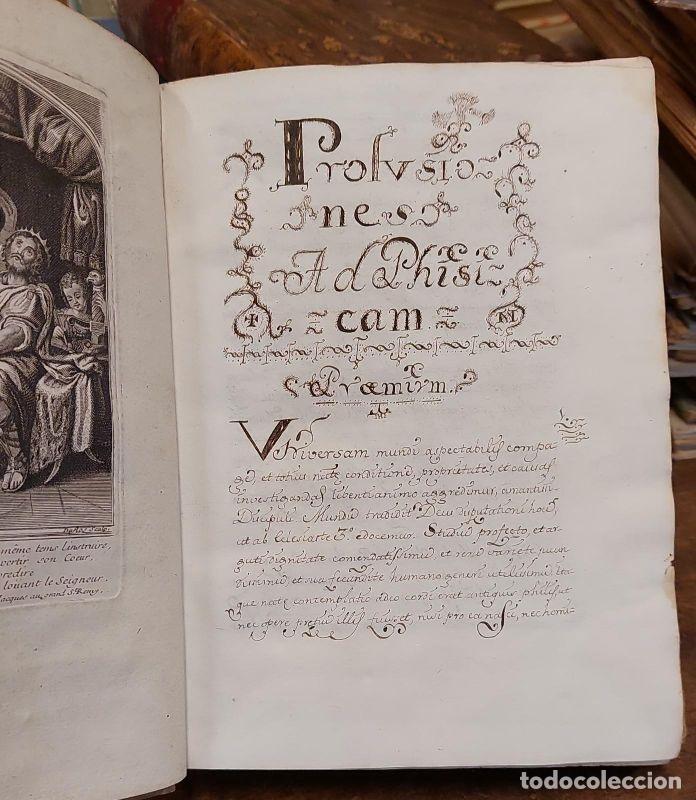 même tems l'instruire,
vertir son Coeur,
redire
louant le Seigneur.
Jacques au grand S.t Remy.
Prolusio
nes
Ad Phisi
cam.
Præmium.
Universam mundi aspectabilis compa
ge, et totius natæ conditione, proprietates, et causas
investigandas libentianimo aggredimur, amantimi
Discipuli. Mundu tradidit Deus disputationi hoc,
ut ab Eclesiaste 3.° docemur. Studiu profecto, et ar
guti dignitate comendatissimu, et reru variete jucun
disimu, et sua fecundite humano generi utilisimu, Ita
que natæ contemplatio adeo cordi erat antiquis philis, ut
nec opere pretiu illis fuit, et, nisi pro ea nasci, nec homi-
todocoleccion